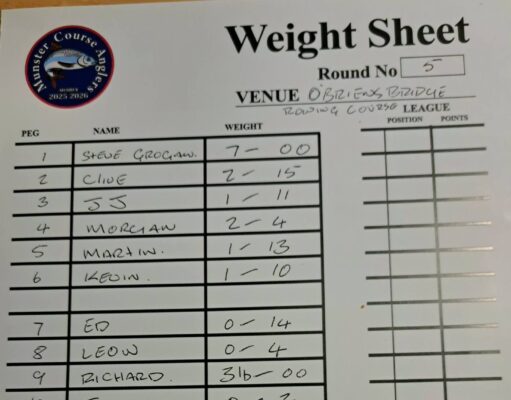 Munster Course Anglers
MEMBER
2025-2026
Weight Sheet
Round No 5
VENUE O'BRIENS BRIDGE
ROWING COURSE LEAGUE
PEG NAME WEIGHT POSITION POINTS
1 STEVE GROGAN. 7 - 00
2 CLIVE 2 - 15
3 JJ 1 - 11
4 MORGAN 2 - 4
5 MARTIN. 1 - 13
6 KEVIN. 1 - 10
7 ED 0 - 14
8 LEON 0 - 4
9 RICHARD. 3lb - 00